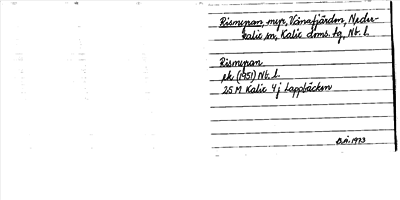 Rismyran, myr, Vånafjärden, Neder-
kalix sn, Kalix doms. tg, Nb. l.
Rismyran
ek (1951) Nb. L.
25 M Kalix 4 j Lappbäcken
B.Å. 1973